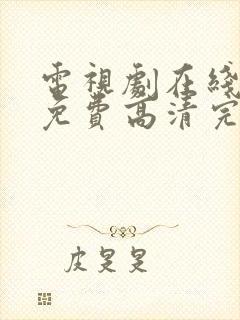 電視劇在綫
免費高清完
皮旻旻